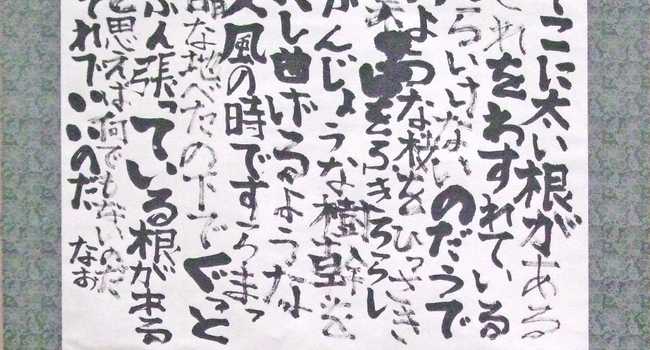 こに太い根がある
れをわすれている
らいけないのだうで
ような枝をひっさき
をふきちらし
がんじょうな樹幹を
し曲げるような
風の時ですらまっ
暗な地べたの下でぐっと
ふん張っている根がある
と思えば何でもないのだ
それでいいのだ なお